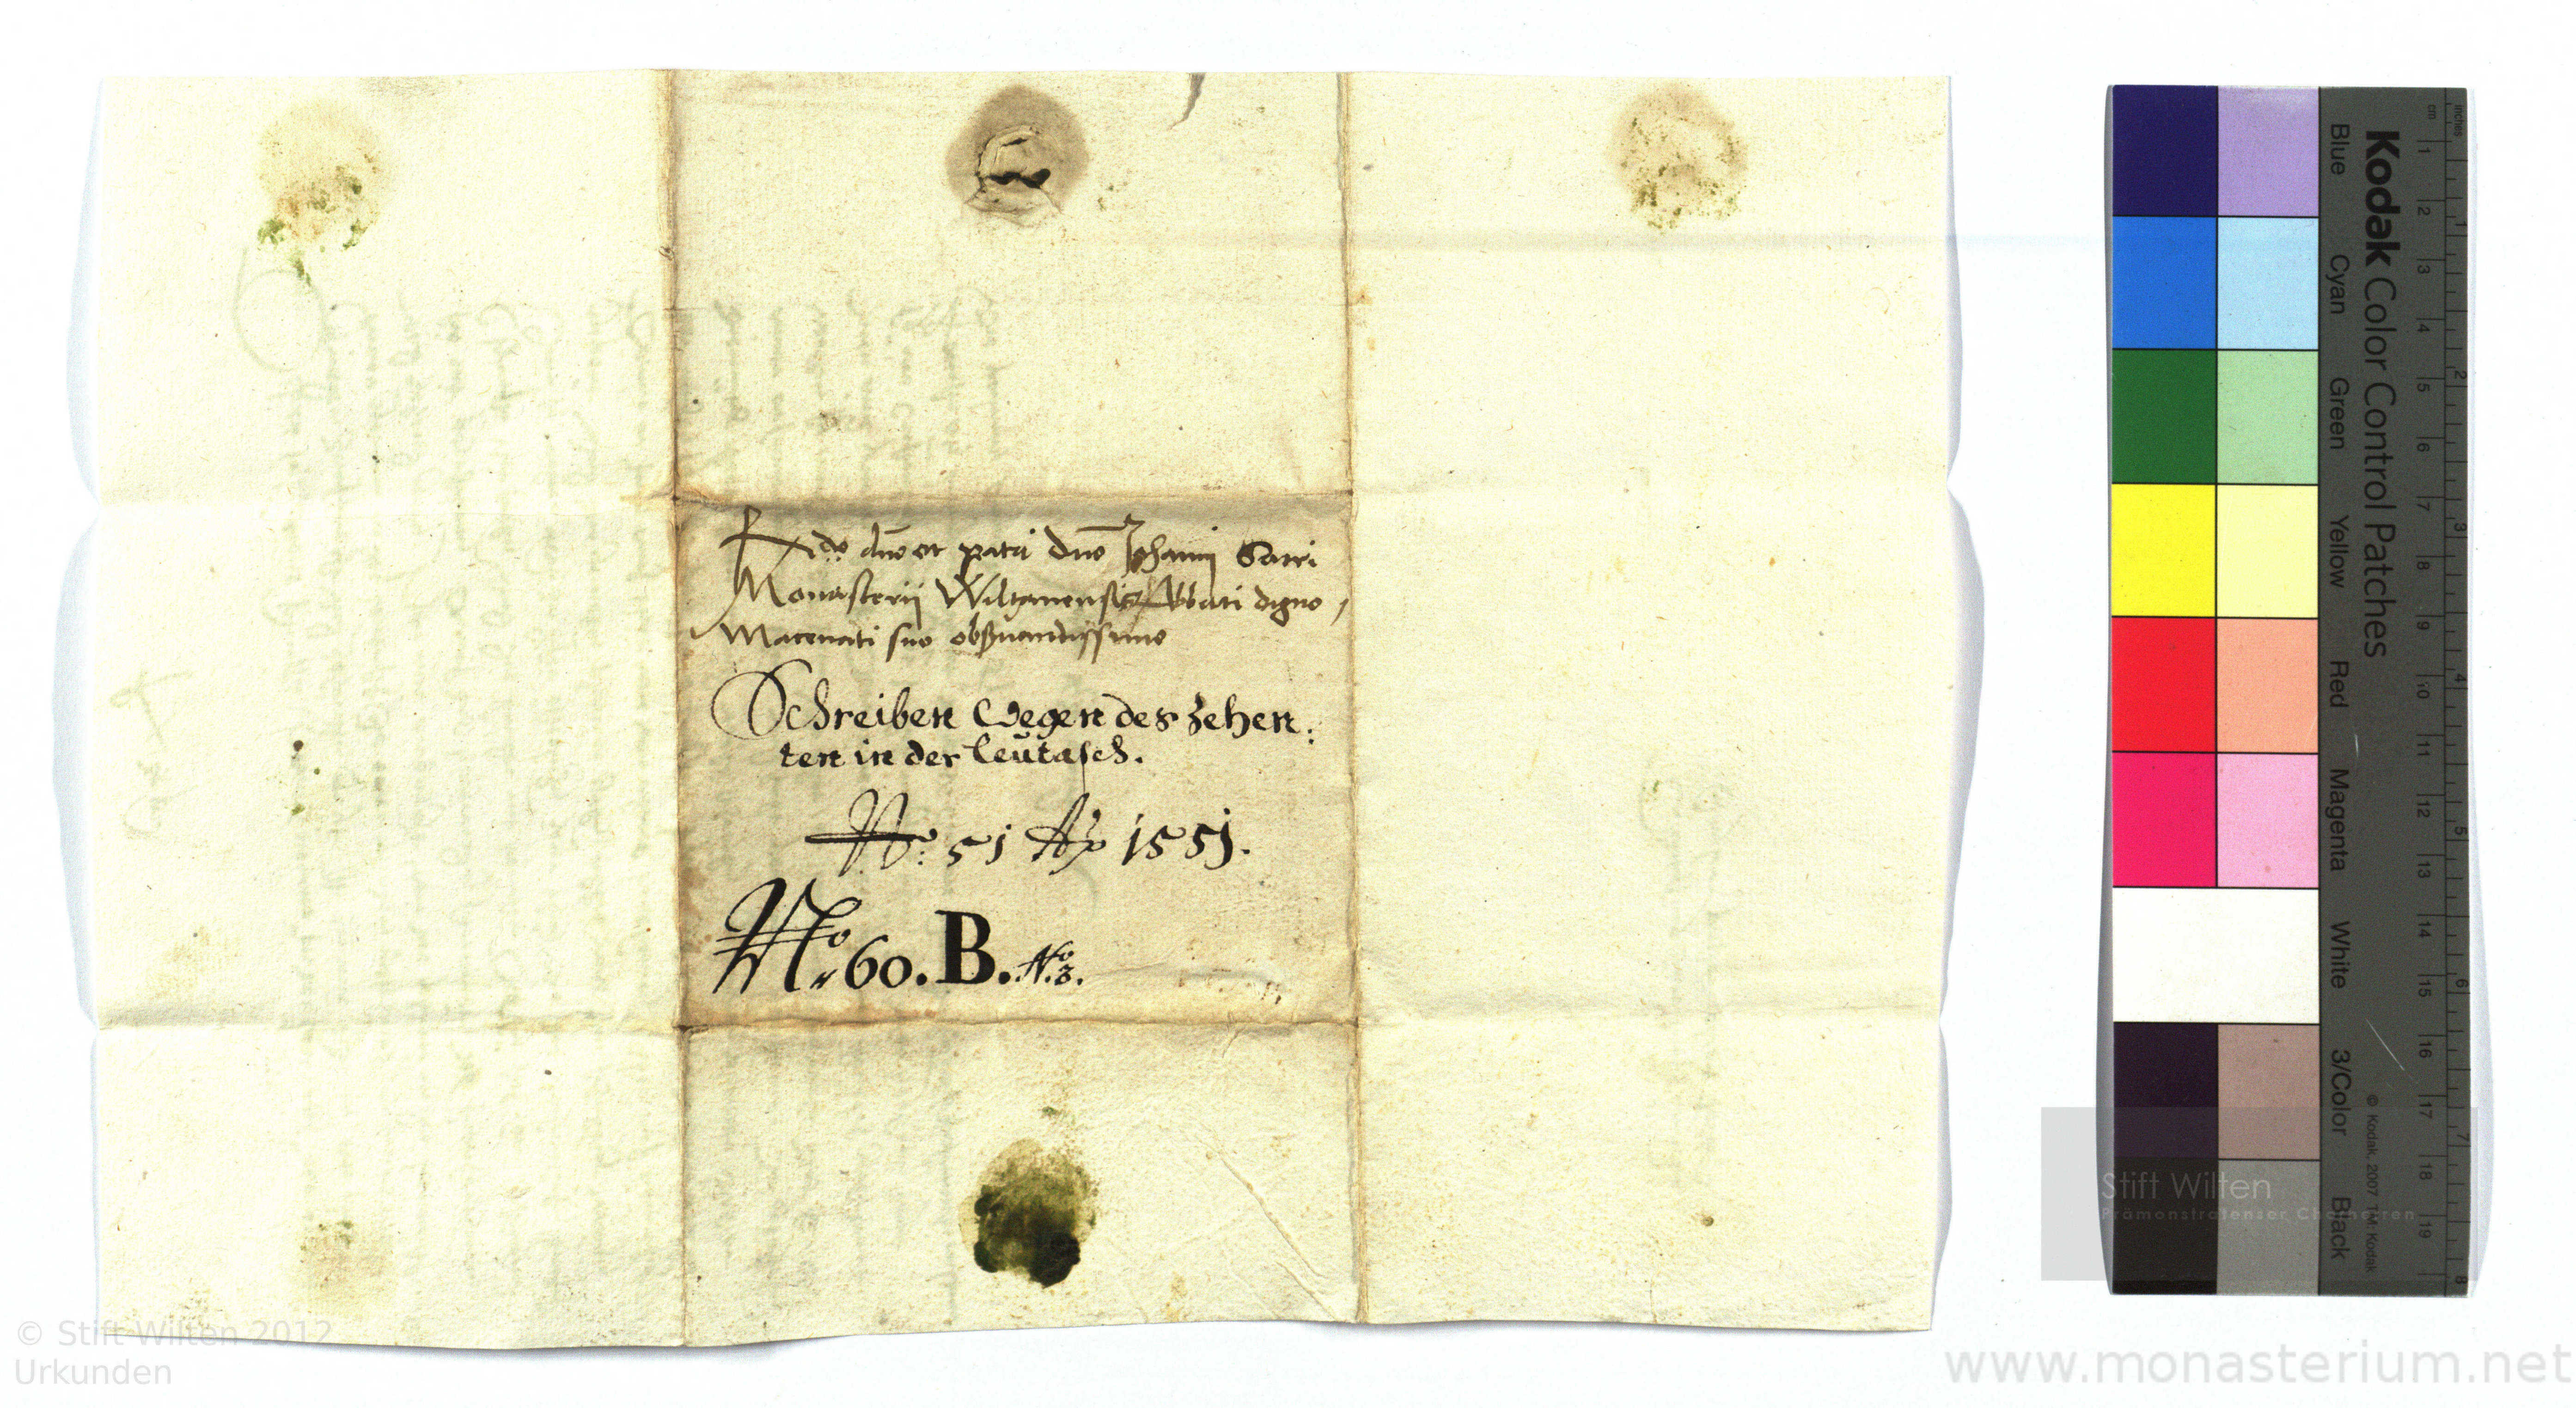 Rdo dno et patri Dno Johanni Sacri
Monasterii Wiltinensis Abbati digno,
Mæcenati suo obseruandissimo
Schreiben wegen des Zehen:
ten in der Leütasch.
No: 51 Ao 1551.
No. 60. B. No. 3.
Kodak Color Control Patches
Blue Cyan Green Yellow Red Magenta White 3/Color Black
© Kodak, 2007 TM: Kodak
inches 1 2 3 4 5 6 7 8
cm 1 2 3 4 5 6 7 8 9 10 11 12 13 14 15 16 17 18 19
Stift Wilten
Prämonstratenser Chorherren
© Stift Wilten 2012
Urkunden
www.monasterium.net